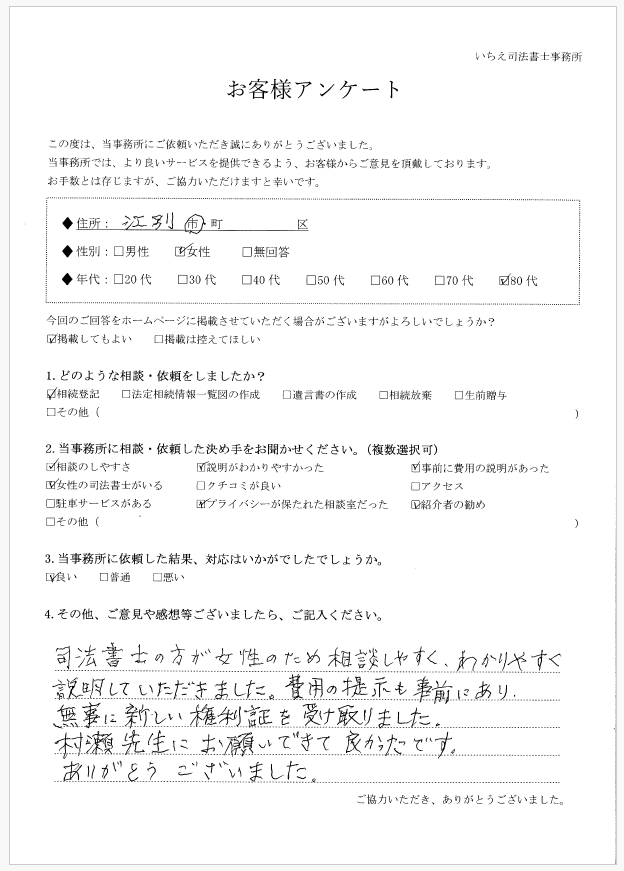 いちえ司法書士事務所
お客様アンケート
この度は、当事務所にご依頼いただき誠にありがとうございました。
当事務所では、より良いサービスを提供できるよう、お客様からご意見を頂戴しております。
お手数とは存じますが、ご協力いただけますと幸いです。
◆住所： 江別 市・町 区
◆性別：□男性 ☑女性 □無回答
◆年代：□20代 □30代 □40代 □50代 □60代 □70代 ☑80代
今回のご回答をホームページに掲載させていただく場合がございますがよろしいでしょうか？
☑掲載してもよい □掲載は控えてほしい
1. どのような相談・依頼をしましたか？
☑相続登記 □法定相続情報一覧図の作成 □遺言書の作成 □相続放棄 □生前贈与
□その他（ ）
2. 当事務所に相談・依頼した決め手をお聞かせください。（複数選択可）
☑相談のしやすさ ☑説明がわかりやすかった ☑事前に費用の説明があった
☑女性の司法書士がいる □クチコミが良い □アクセス
□駐車サービスがある ☑プライバシーが保たれた相談室だった ☑紹介者の勧め
□その他（ ）
3. 当事務所に依頼した結果、対応はいかがでしたでしょうか。
☑良い □普通 □悪い
4. その他、ご意見や感想等ございましたら、ご記入ください。
司法書士の方が女性のため相談しやすく、わかりやすく
説明していただきました。費用の提示も事前にあり、
無事に新しい権利証を受け取りました。
村瀬先生にお願いできて良かったです。
ありがとうございました。
ご協力いただき、ありがとうございました。